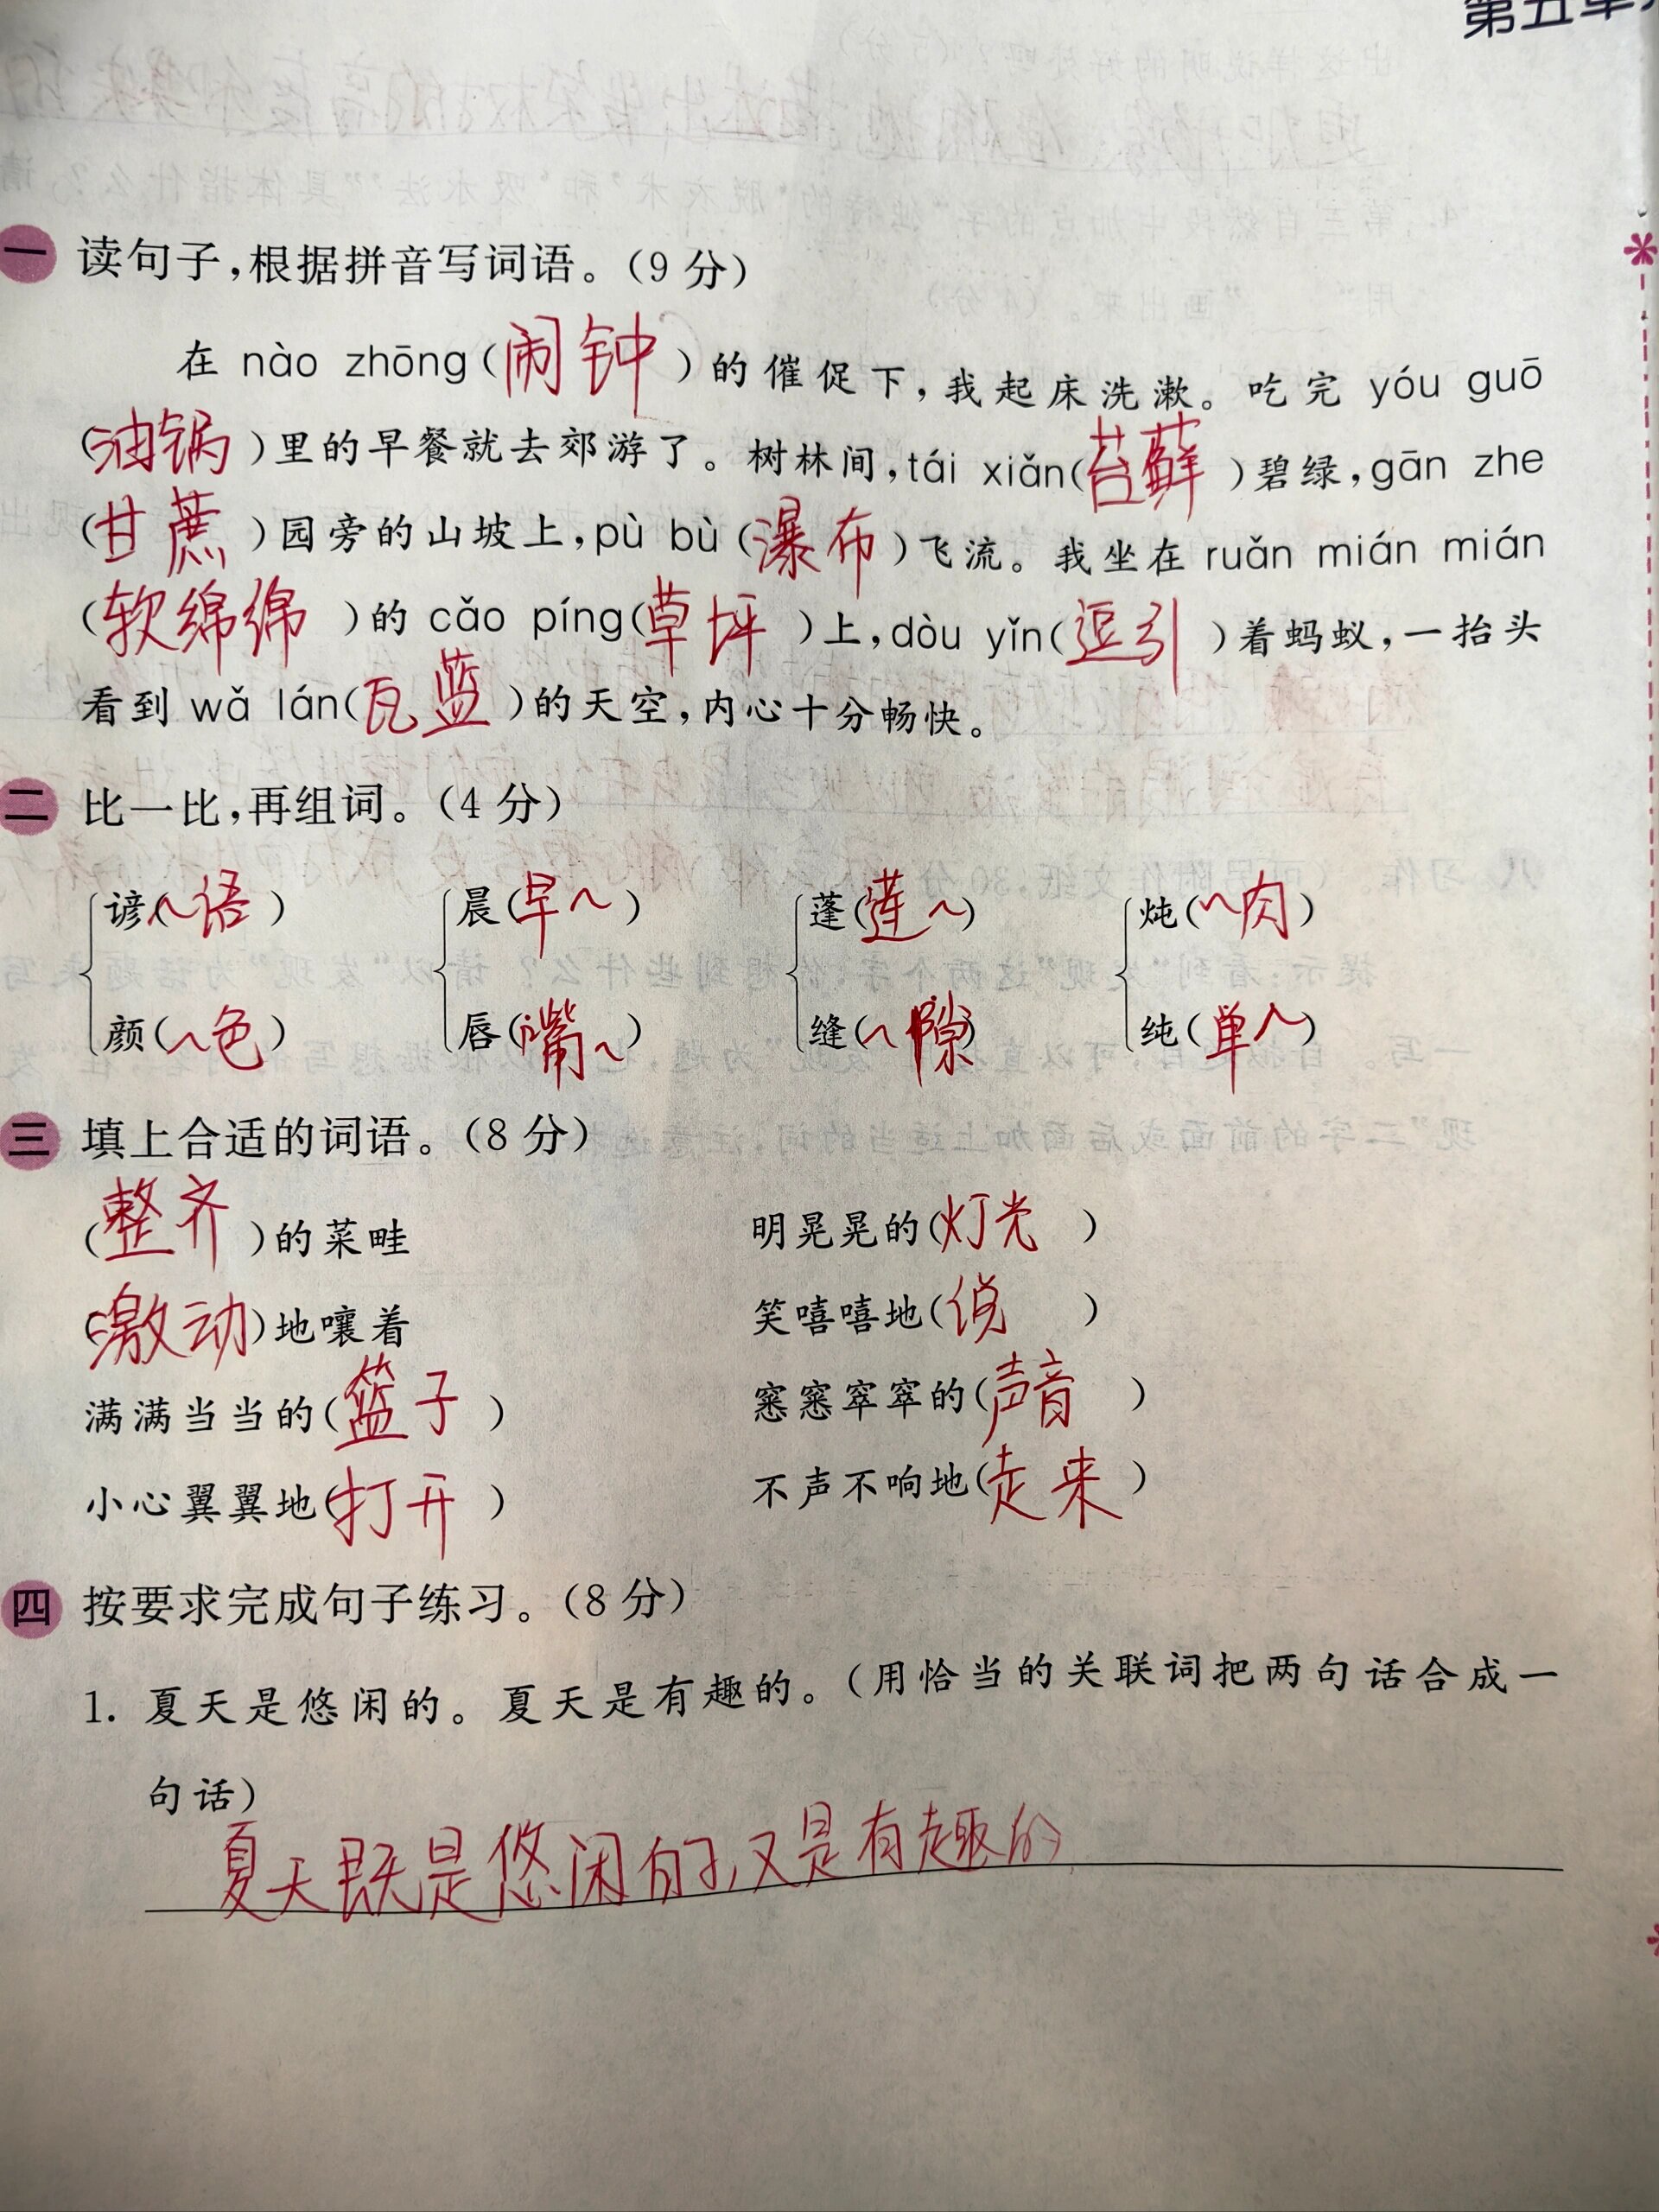 第五单
一 读句子,根据拼音写词语。(9 分)
在 nào zhōng(闹钟)的催促下,我起床洗漱。吃完 yóu guō
(油锅)里的早餐就去郊游了。树林间,tái xiǎn(苔藓)碧绿,gān zhe
(甘蔗)园旁的山坡上,pù bù(瀑布)飞流。我坐在 ruǎn mián mián
(软绵绵)的 cǎo píng(草坪)上,dòu yǐn(逗引)着蚂蚁,一抬头
看到 wǎ lán(瓦蓝)的天空,内心十分畅快。
二 比一比,再组词。(4 分)
谚(~语) 晨(早~) 蓬(莲~) 炖(~肉)
颜(~色) 唇(嘴~) 缝(~隙) 纯(单~)
三 填上合适的词语。(8 分)
(整齐)的菜畦 明晃晃的(灯光)
(激动)地嚷着 笑嘻嘻地(说)
满满当当的(篮子) 窸窸窣窣的(声音)
小心翼翼地(打开) 不声不响地(走来)
四 按要求完成句子练习。(8 分)
1. 夏天是悠闲的。夏天是有趣的。(用恰当的关联词把两句话合成一
句话)
夏天既是悠闲的,又是有趣的